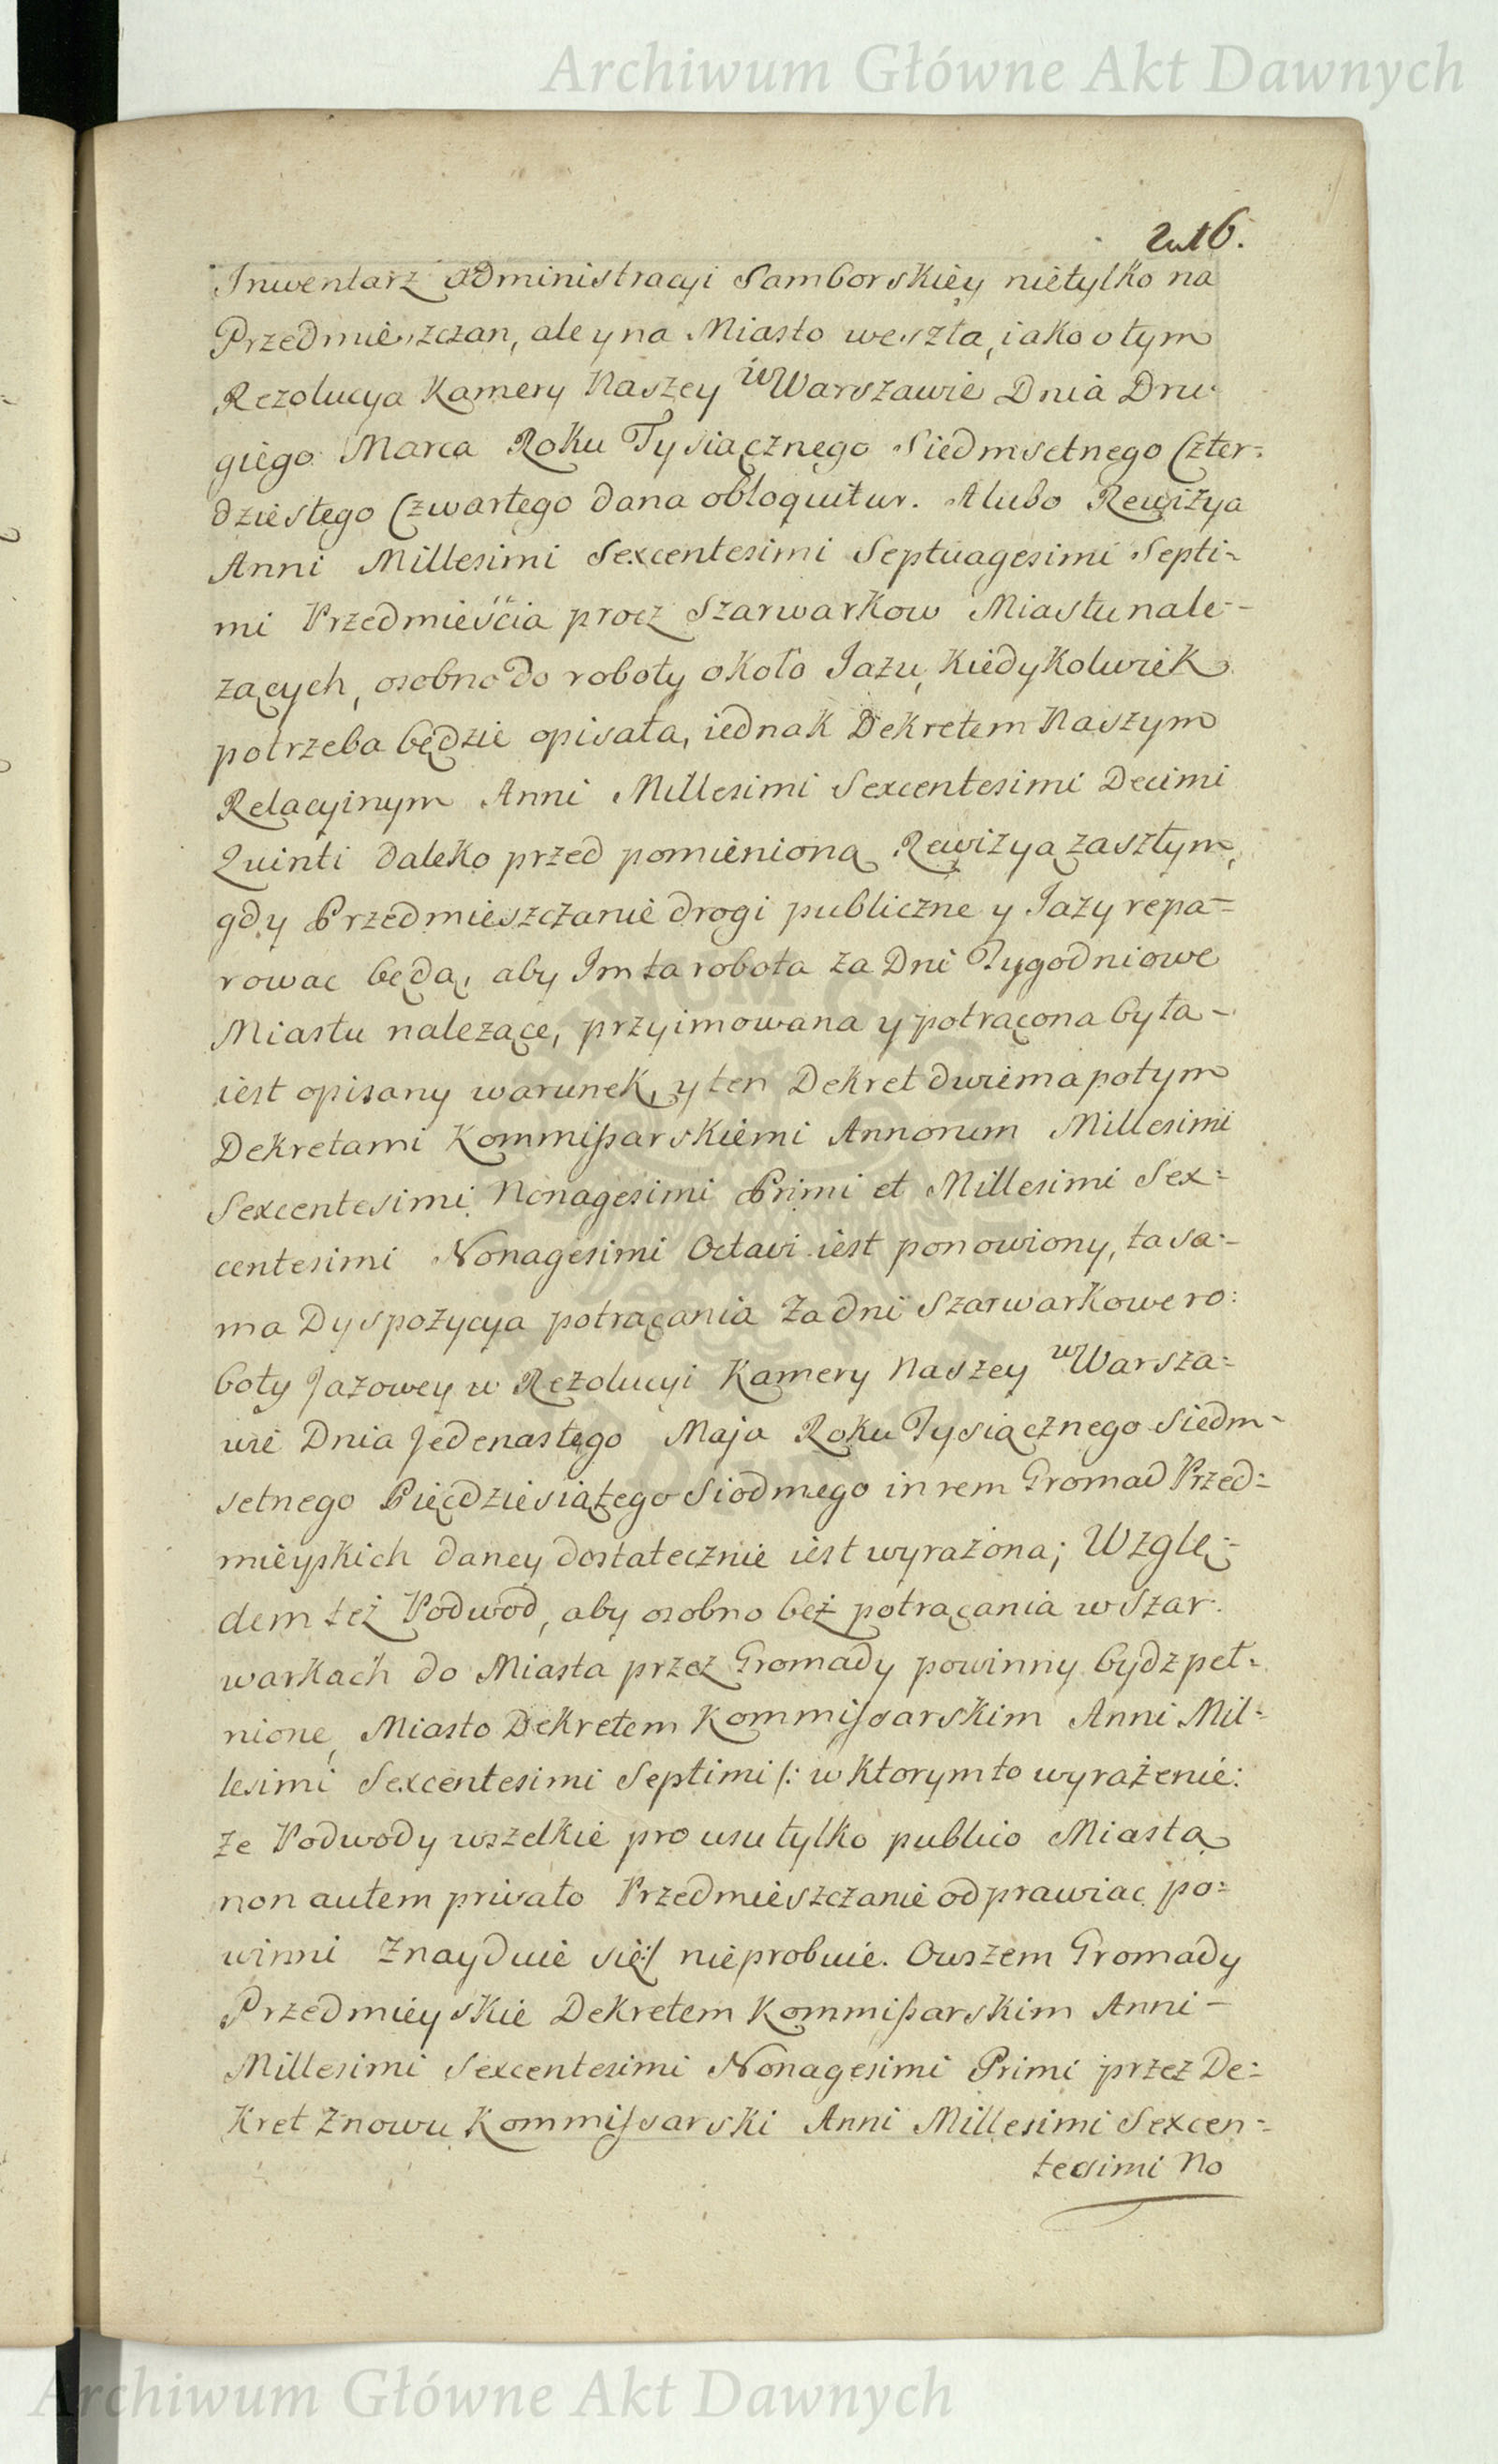 Archiwum Główne Akt Dawnych
216.
Inwentarz Administracyi Samborskiey nietylko na
Przedmieszczan, ale y na Miasto weszła, iako o tym
Rezolucya Kamery Naszey w Warszawie Dnia Dru-
giego Marca Roku Tysiącznego Siedmsetnego Czter=
dziestego Czwartego dana obloquitur. A lubo Rewizya
Anni Millesimi Sexcentesimi Septuagesimi Septi-
mi Przedmieścia procz Szarwarkow Miastu nale-
zących, osobno do roboty około Jazu, kiedykolwiek
potrzeba będzie opisała, iednak Dekretem Naszym
Relacyinym Anni Millesimi Sexcentesimi Decimi
Quinti daleko przed pomienioną Rewizyą zaszłym,
gdy Przedmieszczanie drogi publiczne y Jazy repa=
rowac będą, aby Im ta robota za Dni Tygodniowe
Miastu nalezące, przyimowana y potrącona była -
iest opisany warunek, y ten Dekret dwiema potym
Dekretami Kommissarskiemi Annorum Millesimi
Sexcentesimi Nonagesimi Primi et Millesimi Sex=
centesimi Nonagesimi Octavi iest ponowiony, ta sa=
ma Dyspozycya potrącania za dni Szarwarkowe ro:
boty Jazowey w Rezolucyi Kamery Naszey w Warsza=
wie Dnia Jedenastego Maja Roku Tysiącznego Siedm-
setnego Pięcdziesiątego Siodmego in rem Gromad Przed=
mieyskich daney dostatecznie iest wyrażona; Wzglę=
dem też Podwod, aby osobno beż potrącania w Szar-
warkach do Miasta przez Gromady powinny bydz peł-
nione, Miasto Dekretem Kommissarskim Anni Mil=
lesimi Sexcentesimi Septimi /: w ktorym to wyrażenie:
że Podwody wszelkie pro usu tylko publico Miasta
non autem privato Przedmieszczanie odprawiac po=
winni znayduie się :/ nieprobuie. Owszem Gromady
Przedmieyskie Dekretem Kommissarskim Anni -
Millesimi Sexcentesimi Nonagesimi Primi przez De=
kret znowu Kommissarski Anni Millesimi Sexcen=
tesimi No
Archiwum Główne Akt Dawnych